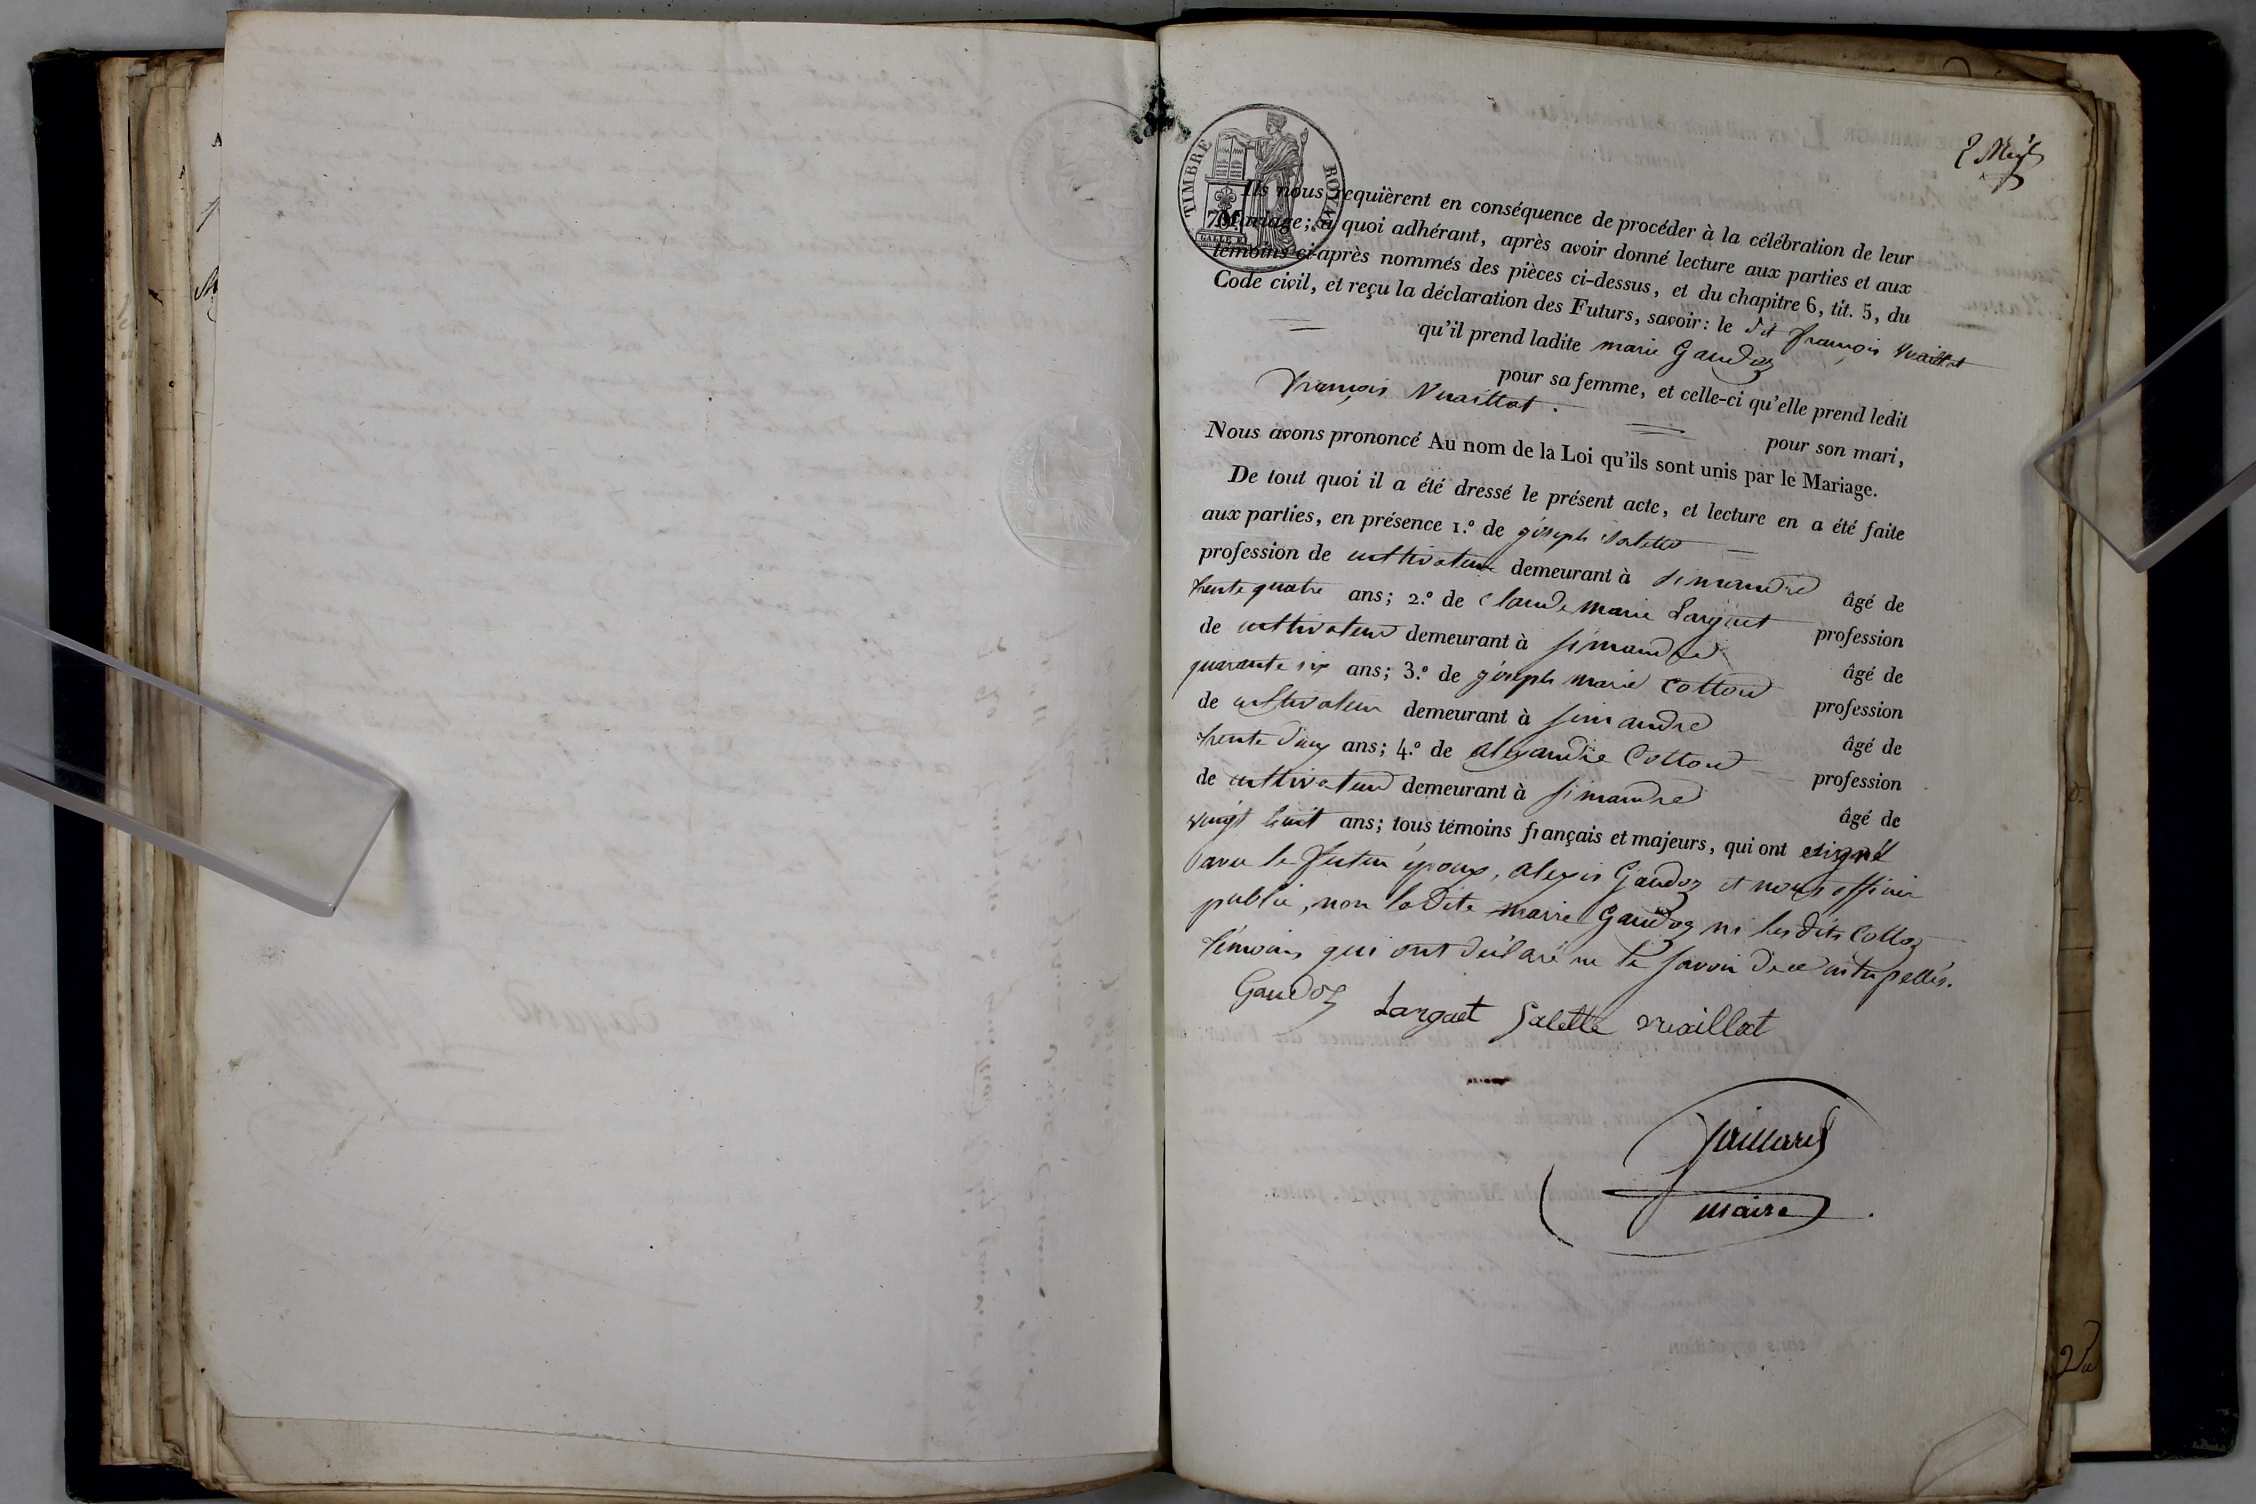 TIMBRE ROYAL
Ils nous requièrent en conséquence de procéder à la célébration de leur
Mariage; à quoi adhérant, après avoir donné lecture aux parties et aux
témoins ci-après nommés des pièces ci-dessus, et du chapitre 6, tit. 5, du
Code civil, et reçu la déclaration des Futurs, savoir: le dit françois Vuaillat
qu'il prend ladite marie Gaudoz
pour sa femme, et celle-ci qu'elle prend ledit
françois Vuaillat.
pour son mari,
Nous avons prononcé Au nom de la Loi qu'ils sont unis par le Mariage.
De tout quoi il a été dressé le présent acte, et lecture en a été faite
aux parties, en présence 1.º de joseph Salette
profession de cultivateur demeurant à simandre âgé de
trente quatre ans; 2.º de Claude marie Larguet profession
de cultivateur demeurant à simandre âgé de
quarante six ans; 3.º de joseph marie Cottoz profession
de cultivateur demeurant à simandre âgé de
trente deux ans; 4.º de alexandre Cottoz profession
de cultivateur demeurant à simandre âgé de
vingt huit ans; tous témoins français et majeurs, qui ont signé
avec le futur époux, alexis Gaudoz et nous officier
public, non la dite marie Gaudoz ni les dits Cottoz
témoins qui ont déclaré ne le savoir de ce interpellés.
Gaudoz Larguet Salette vuaillat
maire